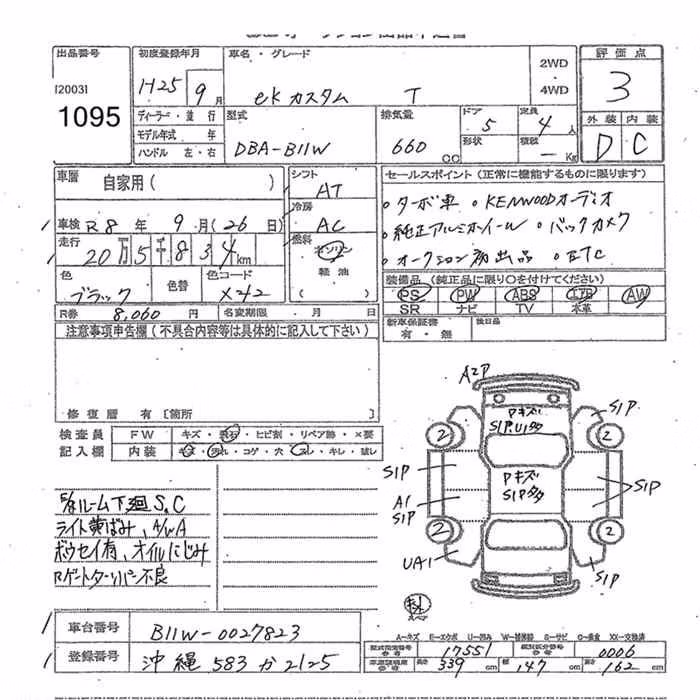 出品番号 初度登録年月 車名・グレード 2WD 4WD 評価点
[2003]
1095
H25 9月 ekカスタム T 3
ディーラー・並行 型式 排気量 ドア 定員 外装 内装
モデル年式 年 5 4人 D C
ハンドル 左・右 DBA-B11W 660 CC 形状 積載 - Kg
車歴 自家用( ) シフト AT セールスポイント(正常に機能するものに限ります)
車検 R8年 9月(26日) 冷房 AC
・ターボ車 ・KENWOODオーディオ
・純正アルミホイール ・バックカメラ
・オークション初出品 ・ETC
走行 20万5千8 34km 燃料 ガソリン 軽油
色 ブラック 色替 色コード X42
装備品(純正品に限り○を付けてください)
PS PW ABS エアB AW
SR ナビ TV 本革
R券 8,060円 名変期限 月 日
新車保証書 有・無 後日品
注意事項申告欄(不具合内容等は具体的に記入して下さい)
修復歴 有[箇所 ]
検査員 FW キズ・飛石・ヒビ割・リペア跡・×要
記入欄 内装 キズ・汚れ・コゲ・穴・スレ・キレ・破レ
ルーム下廻S.C
ライト黄ばみ、A/WA
ボウセイ有、オイルにじみ
Rゲートターリパン不良
A2P
Pキズ
S1P,U1多
S1P
2 2
S1P
Pキズ
S1P多
S1P
A1
S1P
2 2
UA1 S1P
スペア
A-キズ E-エクボ U-凹み W-補修跡 S-サビ C-腐食 XX-交換済
車台番号 B11W-0027823
型式指定番号 17551 類別区分番号 0006
登録番号 沖縄 583 か 2125
長さ 339cm 幅 147cm 高さ 162cm